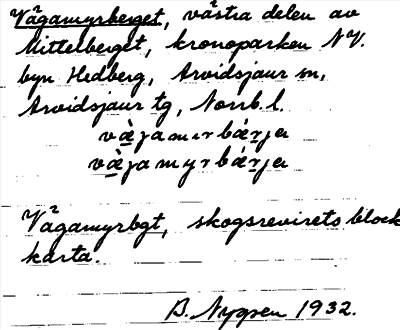 Vågamyrberget, västra delen av
Mittelberget, kronoparken NV.
byn Hedberg, Arvidsjaur sn,
Arvidsjaur tg, Norrb. l.
Vågamyrbgt, skogsrevirets block
karta.
B. Nygren 1932.